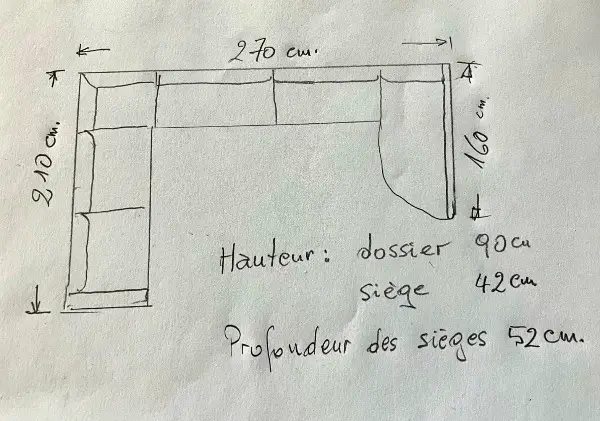 270 cm.
210 cm.
160 cm.
Hauteur: dossier 90cm
siège 42cm
Profondeur des sièges 52cm.